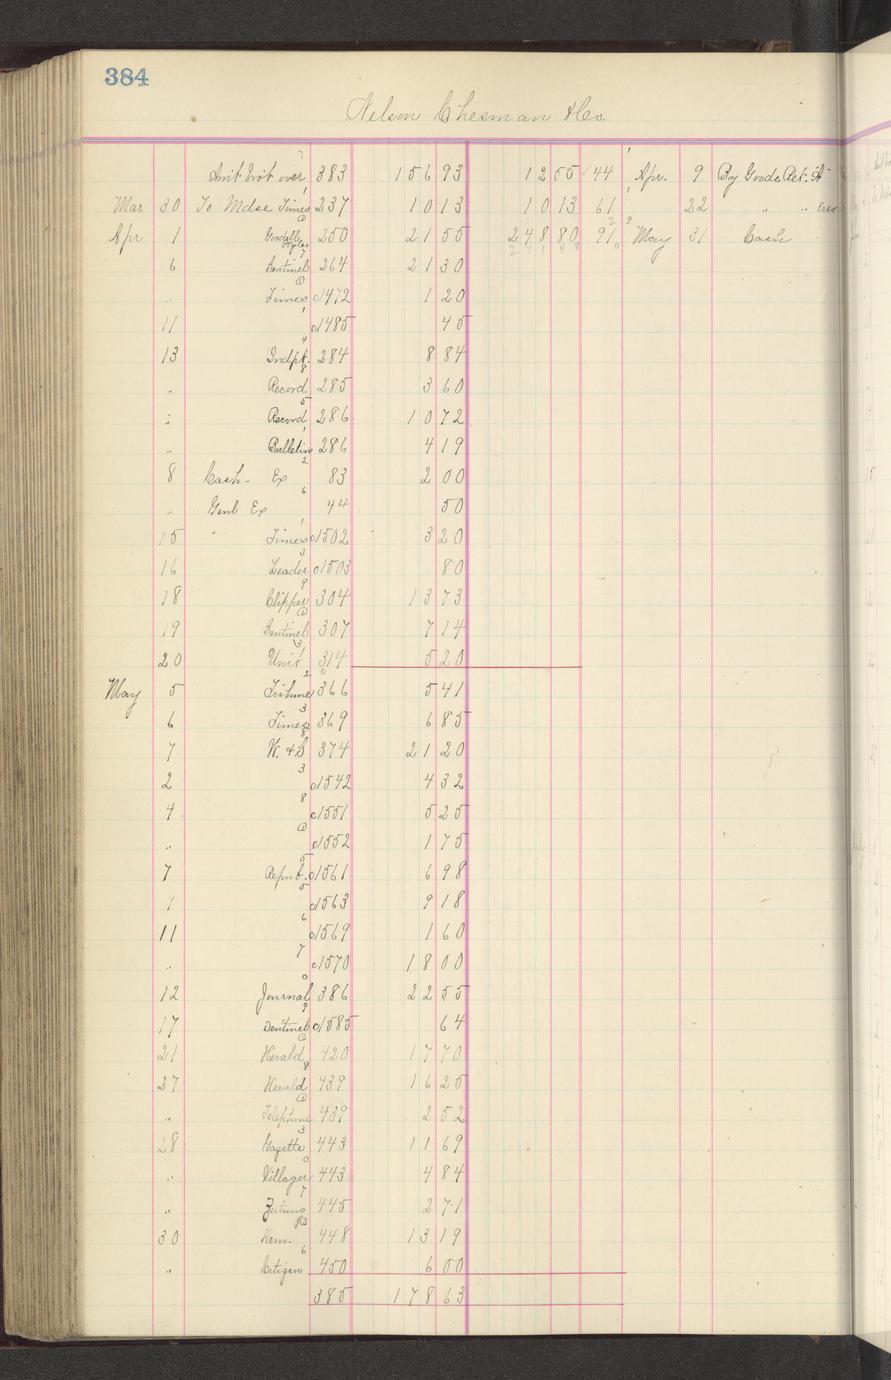 384
Nelson Chesman & Co.
Amt Brot over 383 156 93 12 55 44 Apr. 9 By Goods Ret.
Mar 30 To Mdse Times 237 10 13 10 13 61 22 " "
Apr 1 250 21 55 248 80 91 May 31 Cash
6 Sentinel 264 21 30
" Times c1472 1 20
11 c1485 45
13 Indpt. 284 8 84
" Record 285 3 60
" Record 286 10 72
" Bulletin 286 4 19
8 Cash - Ex 83 2 00
" Genl Ex 44 50
15 " Times c1502 3 20
16 Leader c1503 80
18 Clipper 304 13 73
19 Sentinel 307 7 14
20 Unit 314 5 20
May 5 Tribune 366 5 41
6 Times 369 6 85
7 W. & S 374 21 20
2 c1542 4 32
4 c1551 5 25
" c1552 1 75
7 Repub. c1561 6 98
9 c1563 9 18
11 c1569 1 60
" c1570 18 00
12 Journal 386 22 55
17 Sentinel c1585 64
21 Herald 420 17 70
27 Herald 439 16 25
" Telephone 439 2 52
28 Gazette 443 11 69
" Villager 443 4 84
" Zeitung 445 2 71
30 448 13 19
" Citizen 450 6 00
385 178 63